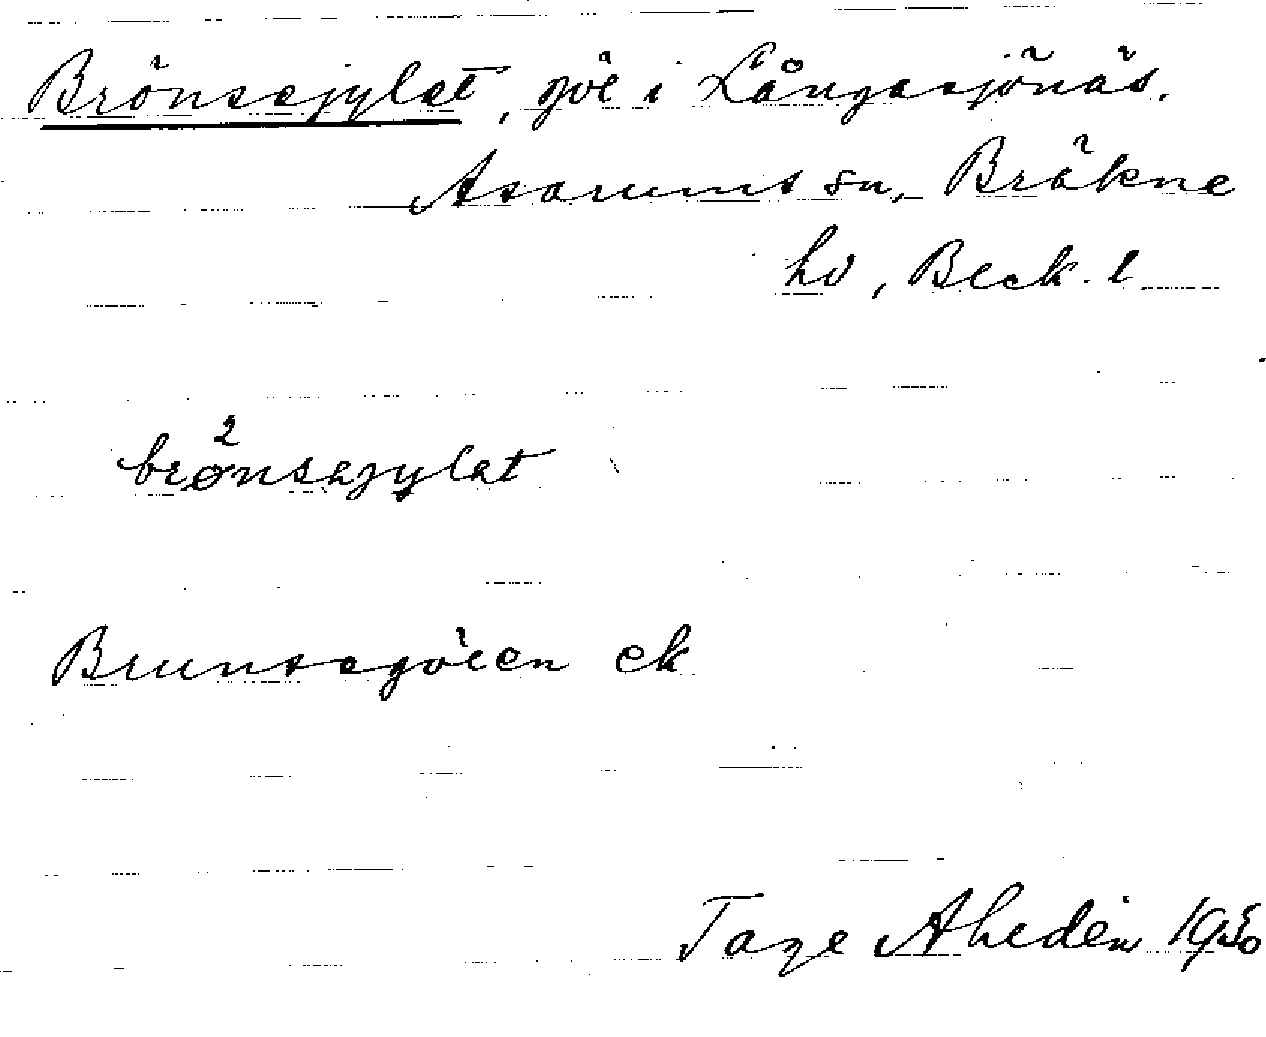 Brönsajylet, göl i Långasjönäs.
Asarums sn, Bräkne
hd, Bleck. l
2
brønsajylət
Brunsagölen ek
Tage Ahedén 1930